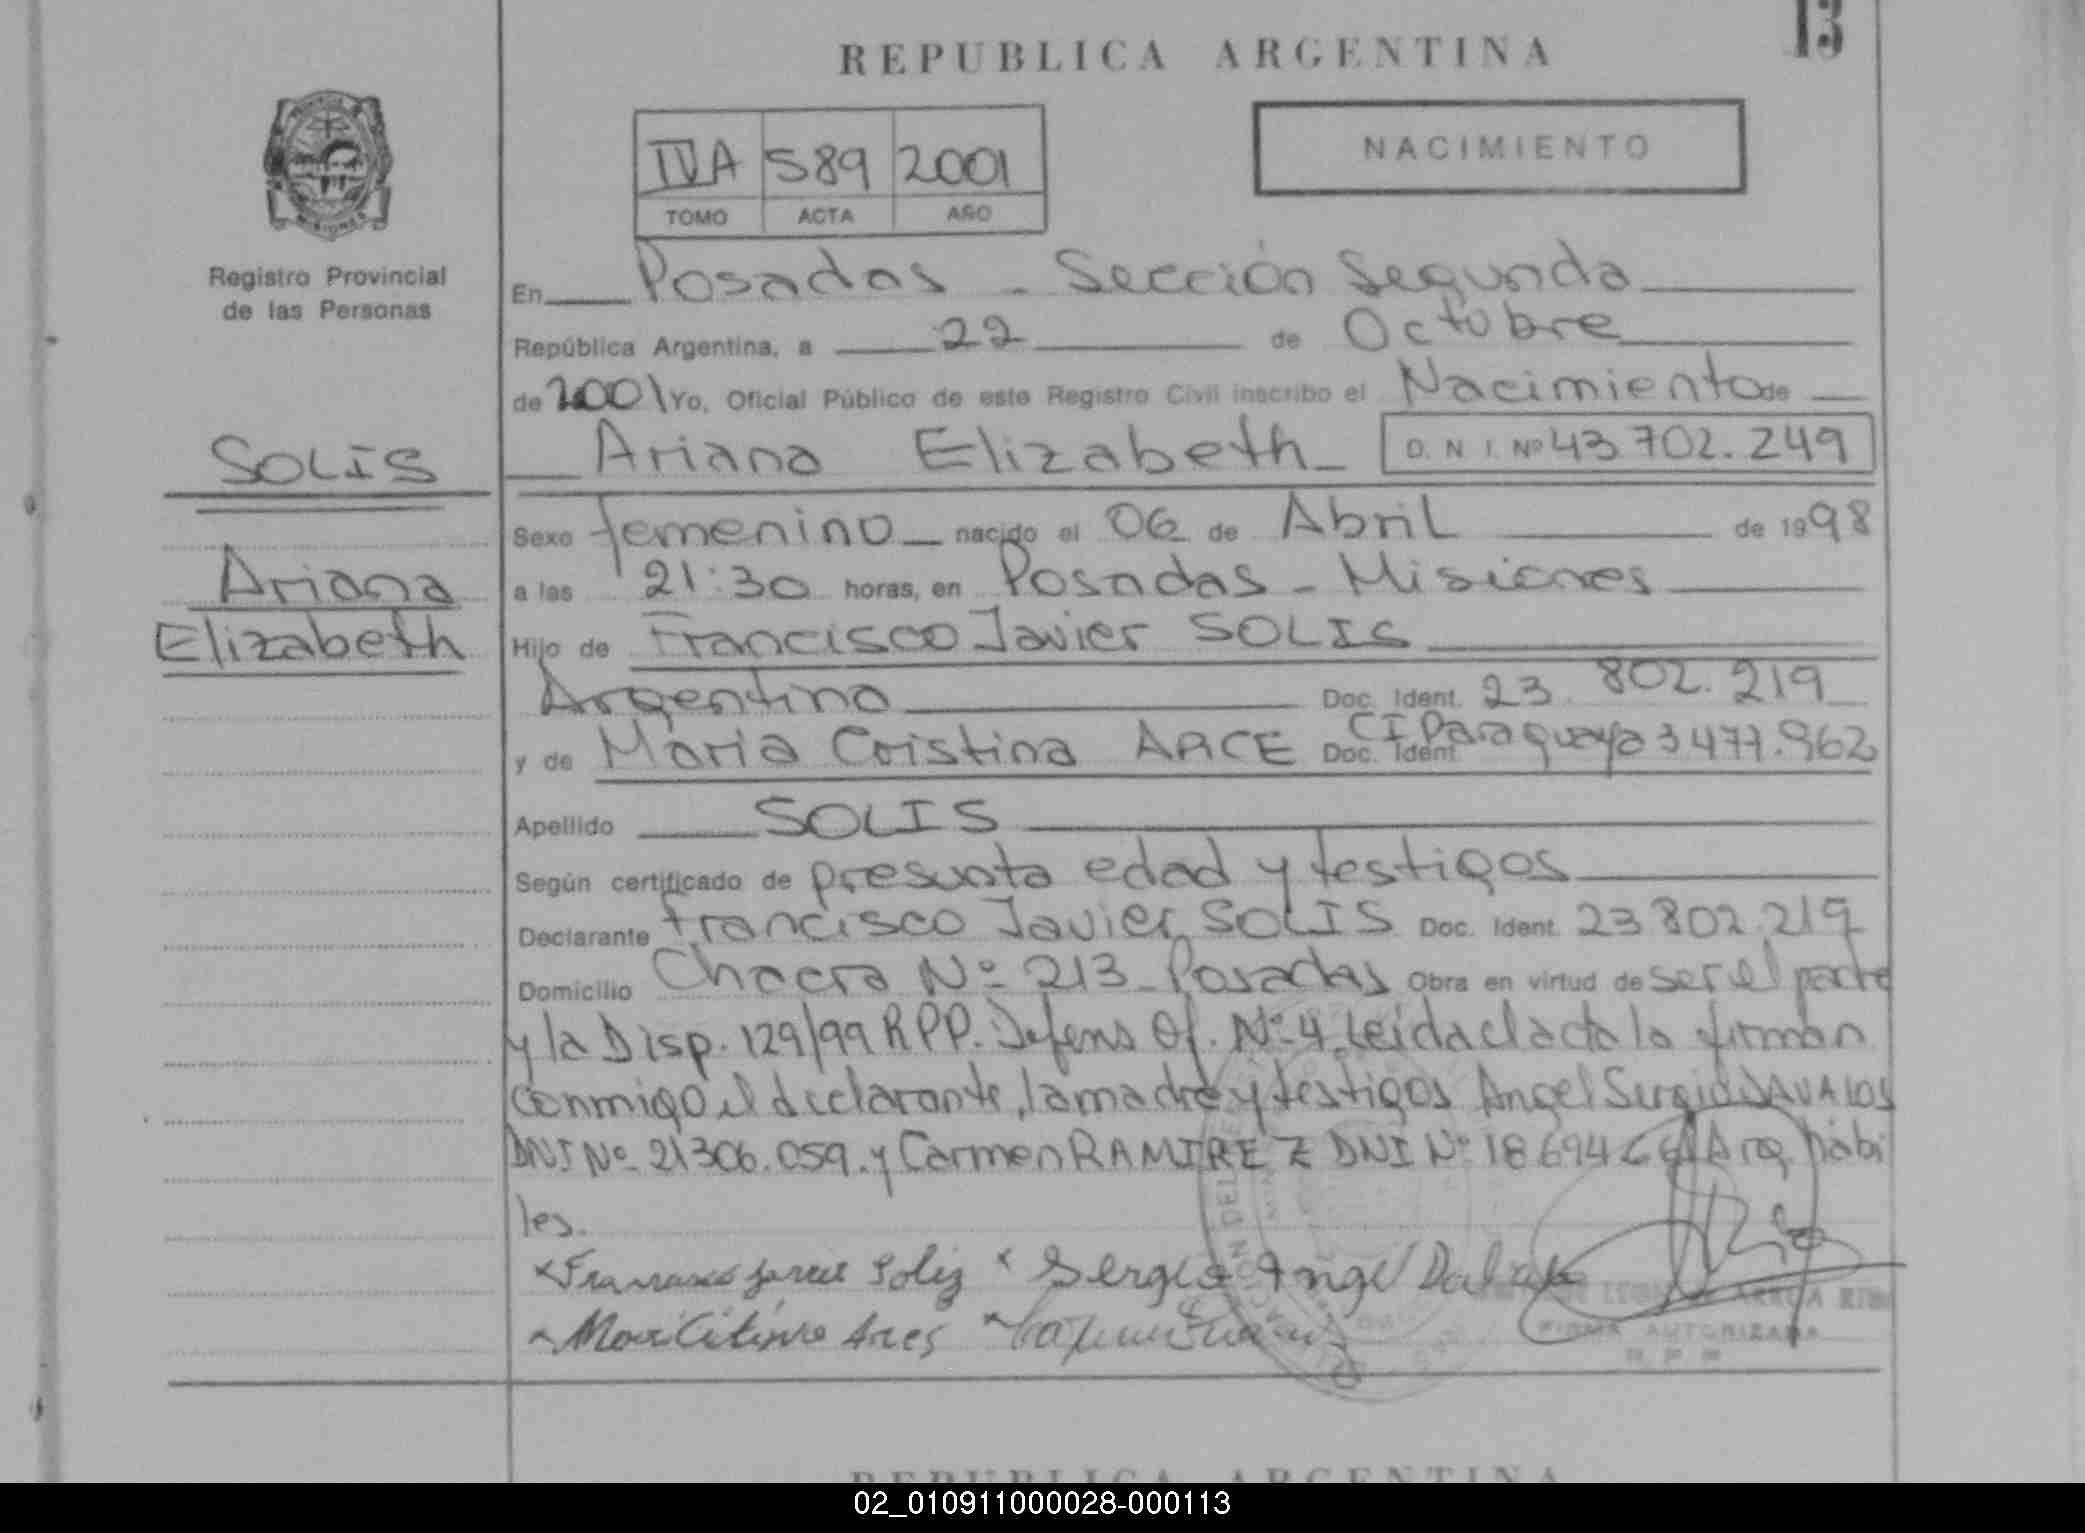 13
REPUBLICA ARGENTINA
IVA 589 2001
TOMO ACTA AÑO
NACIMIENTO
MISIONES
Registro Provincial
de las Personas
SOLIS
Ariana
Elizabeth
En Posadas - Sección Segunda
República Argentina, a 22 de Octubre
de 2001 Yo, Oficial Público de este Registro Civil inscribo el Nacimiento de
Ariana Elizabeth D.N.I. Nº 43.702.249
Sexo femenino nacido el 06 de Abril de 1998
a las 21:30 horas, en Posadas - Misiones
Hijo de Francisco Javier SOLIS
Argentino Doc. Ident. 23.802.219
y de Maria Cristina ARCE Doc. Ident. CI Paraguaya 3477.962
Apellido SOLIS
Según certificado de presunta edad y testigos
Declarante Francisco Javier SOLIS Doc. Ident. 23802.219
Domicilio Chacra Nº 213 - Posadas Obra en virtud de ser el padre
y la Disp. 129/99 RPP. Defens Of. Nº 4 Leida el acta la firman
conmigo el declarante, la madre y testigos Angel Sergio DAVALOS
DNI Nº 21306.059. y Carmen RAMIREZ DNI Nº Arg. hábi
les.
Sergio Angel
FIRMA AUTORIZADA
REPUBLICA ARGENTINA
02_010911000028-000113